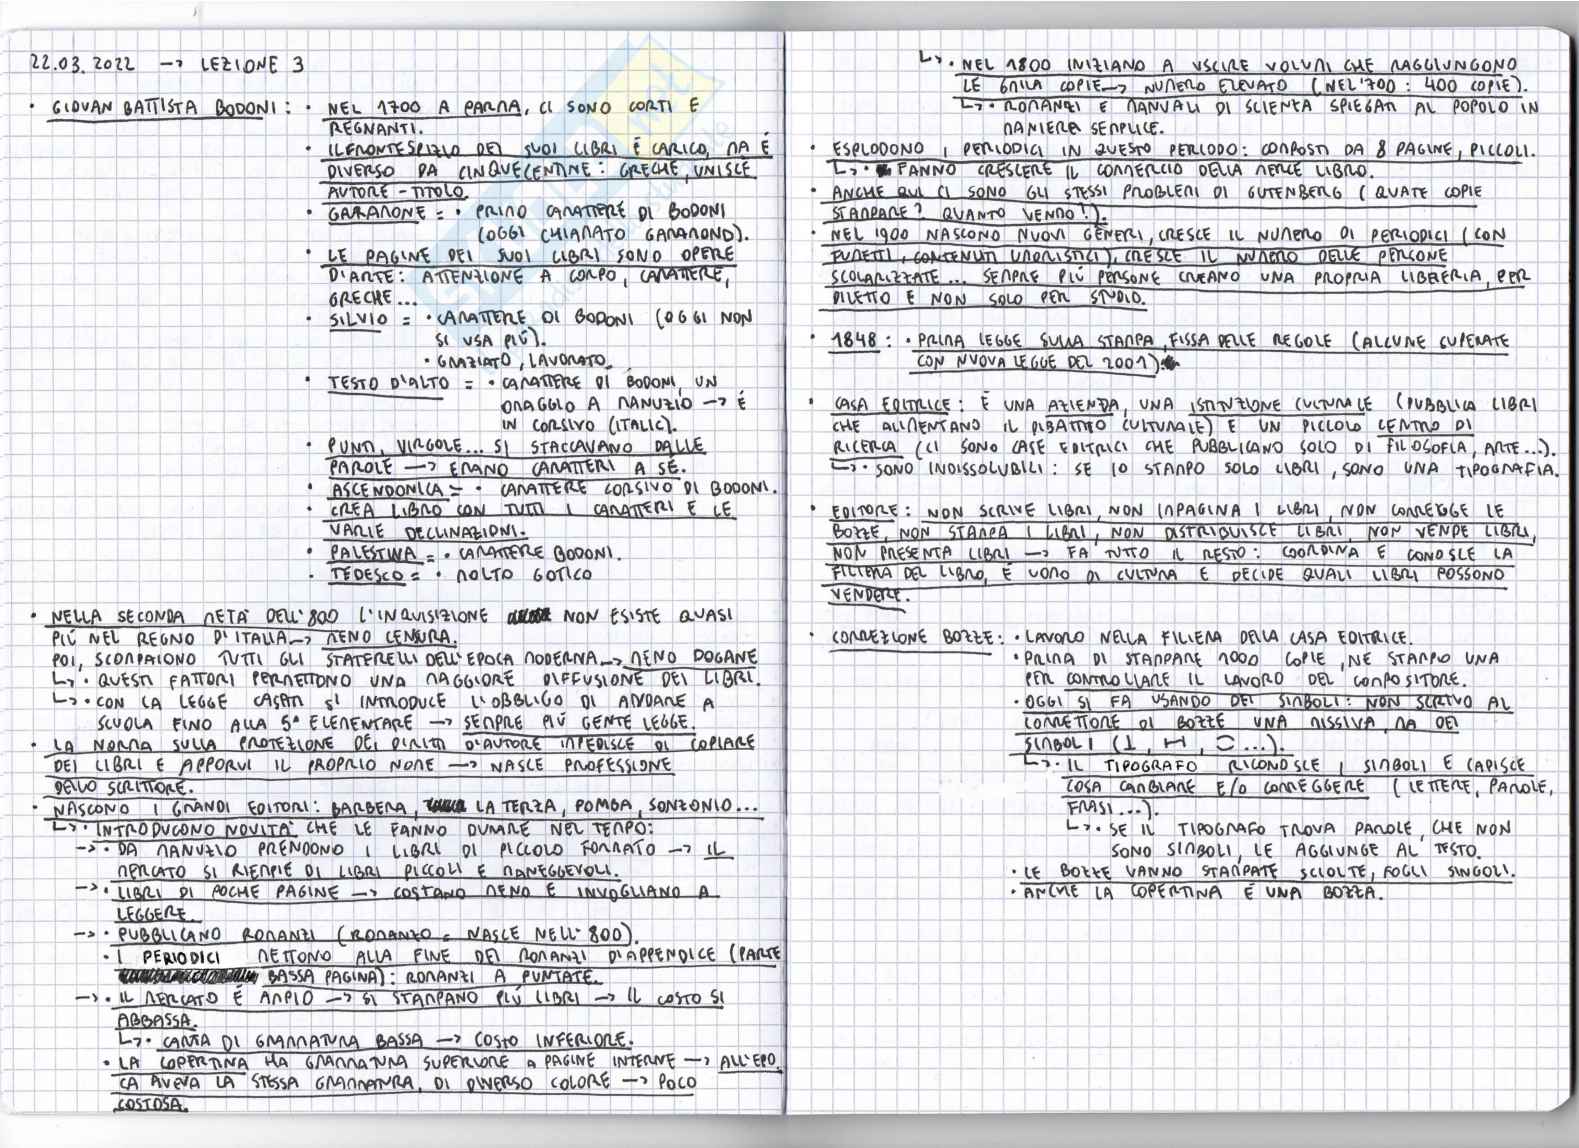 22.03.2022 → LEZIONE 3
• GIOVAN BATTISTA BODONI: • NEL 1700 A PARMA, CI SONO CORTI E
REGNANTI.
• IL FRONTESPIZIO DEI SUOI LIBRI È CARICO, MA È
DIVERSO DA CINQUECENTINE: GRECHE, UNISCE
AUTORE - TITOLO.
• GARAMONE = • PRIMO CARATTERE DI BODONI
(OGGI CHIAMATO GARAMOND).
• LE PAGINE DEI SUOI LIBRI SONO OPERE
D'ARTE: ATTENZIONE A CORPO, CARATTERE,
GRECHE...
• SILVIO = • CARATTERE DI BODONI (OGGI NON
SI USA PIÚ).
• GRAZIATO, LAVORATO.
• TESTO D'ALTO = • CARATTERE DI BODONI, UN
OMAGGIO A MANUZIO → È
IN CORSIVO (ITALIC).
• PUNTI, VIRGOLE... SI STACCAVANO DALLE
PAROLE → ERANO CARATTERI A SÉ.
• ASCENDONICA = • CARATTERE CORSIVO DI BODONI.
• CREA LIBRO CON TUTTI I CARATTERI E LE
VARIE DECLINAZIONI.
• PALESTINA = • CARATTERE BODONI.
• TEDESCO = • MOLTO GOTICO
• NELLA SECONDA METÀ DELL'800 L'INQUISIZIONE NON ESISTE QUASI
PIÚ NEL REGNO D'ITALIA → MENO CENSURA.
POI, SCOMPAIONO TUTTI GLI STATERELLI DELL'EPOCA MODERNA → MENO DOGANE
↳ • QUESTI FATTORI PERMETTONO UNA MAGGIORE DIFFUSIONE DEI LIBRI.
↳ • CON LA LEGGE CASATI SI INTRODUCE L'OBBLIGO DI ANDARE A
SCUOLA FINO ALLA 5ª ELEMENTARE → SEMPRE PIÚ GENTE LEGGE.
• LA NORMA SULLA PROTEZIONE DEI DIRITTI D'AUTORE IMPEDISCE DI COPIARE
DEI LIBRI E APPORVI IL PROPRIO NOME → NASCE PROFESSIONE
DELLO SCRITTORE.
• NASCONO I GRANDI EDITORI: BARBERA, LA TERZA, POMBA, SONZONIO...
↳ • INTRODUCONO NOVITÀ CHE LE FANNO DURARE NEL TEMPO:
→ • DA MANUZIO PRENDONO I LIBRI DI PICCOLO FORMATO → IL
MERCATO SI RIEMPIE DI LIBRI PICCOLI E MANEGGEVOLI.
→ • LIBRI DI POCHE PAGINE → COSTANO MENO E INVOGLIANO A
LEGGERE.
→ • PUBBLICANO ROMANZI (ROMANZO = NASCE NELL'800).
• I PERIODICI METTONO ALLA FINE DEI ROMANZI D'APPENDICE (PARTE
BASSA PAGINA): ROMANZI A PUNTATE.
→ • IL MERCATO È AMPIO → SI STAMPANO PIÚ LIBRI → IL COSTO SI
ABBASSA.
↳ • CARTA DI GRAMMATURA BASSA → COSTO INFERIORE.
• LA COPERTINA HA GRAMMATURA SUPERIORE A PAGINE INTERNE → ALL'EPO
CA AVEVA LA STESSA GRAMMATURA, DI DIVERSO COLORE → POCO
COSTOSA.
↳ • NEL 1800 INIZIANO A USCIRE VOLUMI CHE RAGGIUNGONO
LE 6MILA COPIE → NUMERO ELEVATO (NEL '700: 400 COPIE).
↳ • ROMANZI E MANUALI DI SCIENZA SPIEGATI AL POPOLO IN
MANIERA SEMPLICE.
• ESPLODONO I PERIODICI IN QUESTO PERIODO: COMPOSTI DA 8 PAGINE, PICCOLI.
↳ • FANNO CRESCERE IL COMMERCIO DELLA MERCE LIBRO.
• ANCHE QUI CI SONO GLI STESSI PROBLEMI DI GUTENBERG (QUATE COPIE
STAMPARE? QUANTO VENDO?).
• NEL 1900 NASCONO NUOVI GENERI, CRESCE IL NUMERO DI PERIODICI (CON
FUMETTI, CONTENUTI UMORISTICI), CRESCE IL NUMERO DELLE PERSONE
SCOLARIZZATE... SEMPRE PIÚ PERSONE CREANO UNA PROPRIA LIBRERIA, PER
DILETTO E NON SOLO PER STUDIO.
• 1848: • PRIMA LEGGE SULLA STAMPA, FISSA DELLE REGOLE (ALCUNE SUPERATE
CON NUOVA LEGGE DEL 2001).
• CASA EDITRICE: È UNA AZIENDA, UNA ISTITUZIONE CULTURALE (PUBBLICA LIBRI
CHE ALIMENTANO IL DIBATTITO CULTURALE) E UN PICCOLO CENTRO DI
RICERCA (CI SONO CASE EDITRICI CHE PUBBLICANO SOLO DI FILOSOFIA, ARTE...).
↳ • SONO INDISSOLUBILI: SE IO STAMPO SOLO LIBRI, SONO UNA TIPOGRAFIA.
• EDITORE: NON SCRIVE LIBRI, NON IMPAGINA I LIBRI, NON CORREGGE LE
BOZZE, NON STAMPA I LIBRI, NON DISTRIBUISCE LIBRI, NON VENDE LIBRI,
NON PRESENTA LIBRI → FA TUTTO IL RESTO: COORDINA E CONOSCE LA
FILIERA DEL LIBRO, È UOMO DI CULTURA E DECIDE QUALI LIBRI POSSONO
VENDERE.
• CORREZIONE BOZZE: • LAVORO NELLA FILIERA DELLA CASA EDITRICE.
• PRIMA DI STAMPARE 1000 COPIE, NE STAMPO UNA
PER CONTROLLARE IL LAVORO DEL COMPOSITORE.
• OGGI SI FA USANDO DEI SIMBOLI: NON SCRIVO AL
CORRETTORE DI BOZZE UNA MISSIVA, MA DEI
SIMBOLI (⊥, H, ...).
↳ • IL TIPOGRAFO RICONOSCE I SIMBOLI E CAPISCE
COSA CAMBIARE E/O CORREGGERE (LETTERE, PAROLE,
FRASI...).
↳ • SE IL TIPOGRAFO TROVA PAROLE, CHE NON
SONO SIMBOLI, LE AGGIUNGE AL TESTO.
• LE BOZZE VANNO STAMPATE SCIOLTE, FOGLI SINGOLI.
• ANCHE LA COPERTINA È UNA BOZZA.